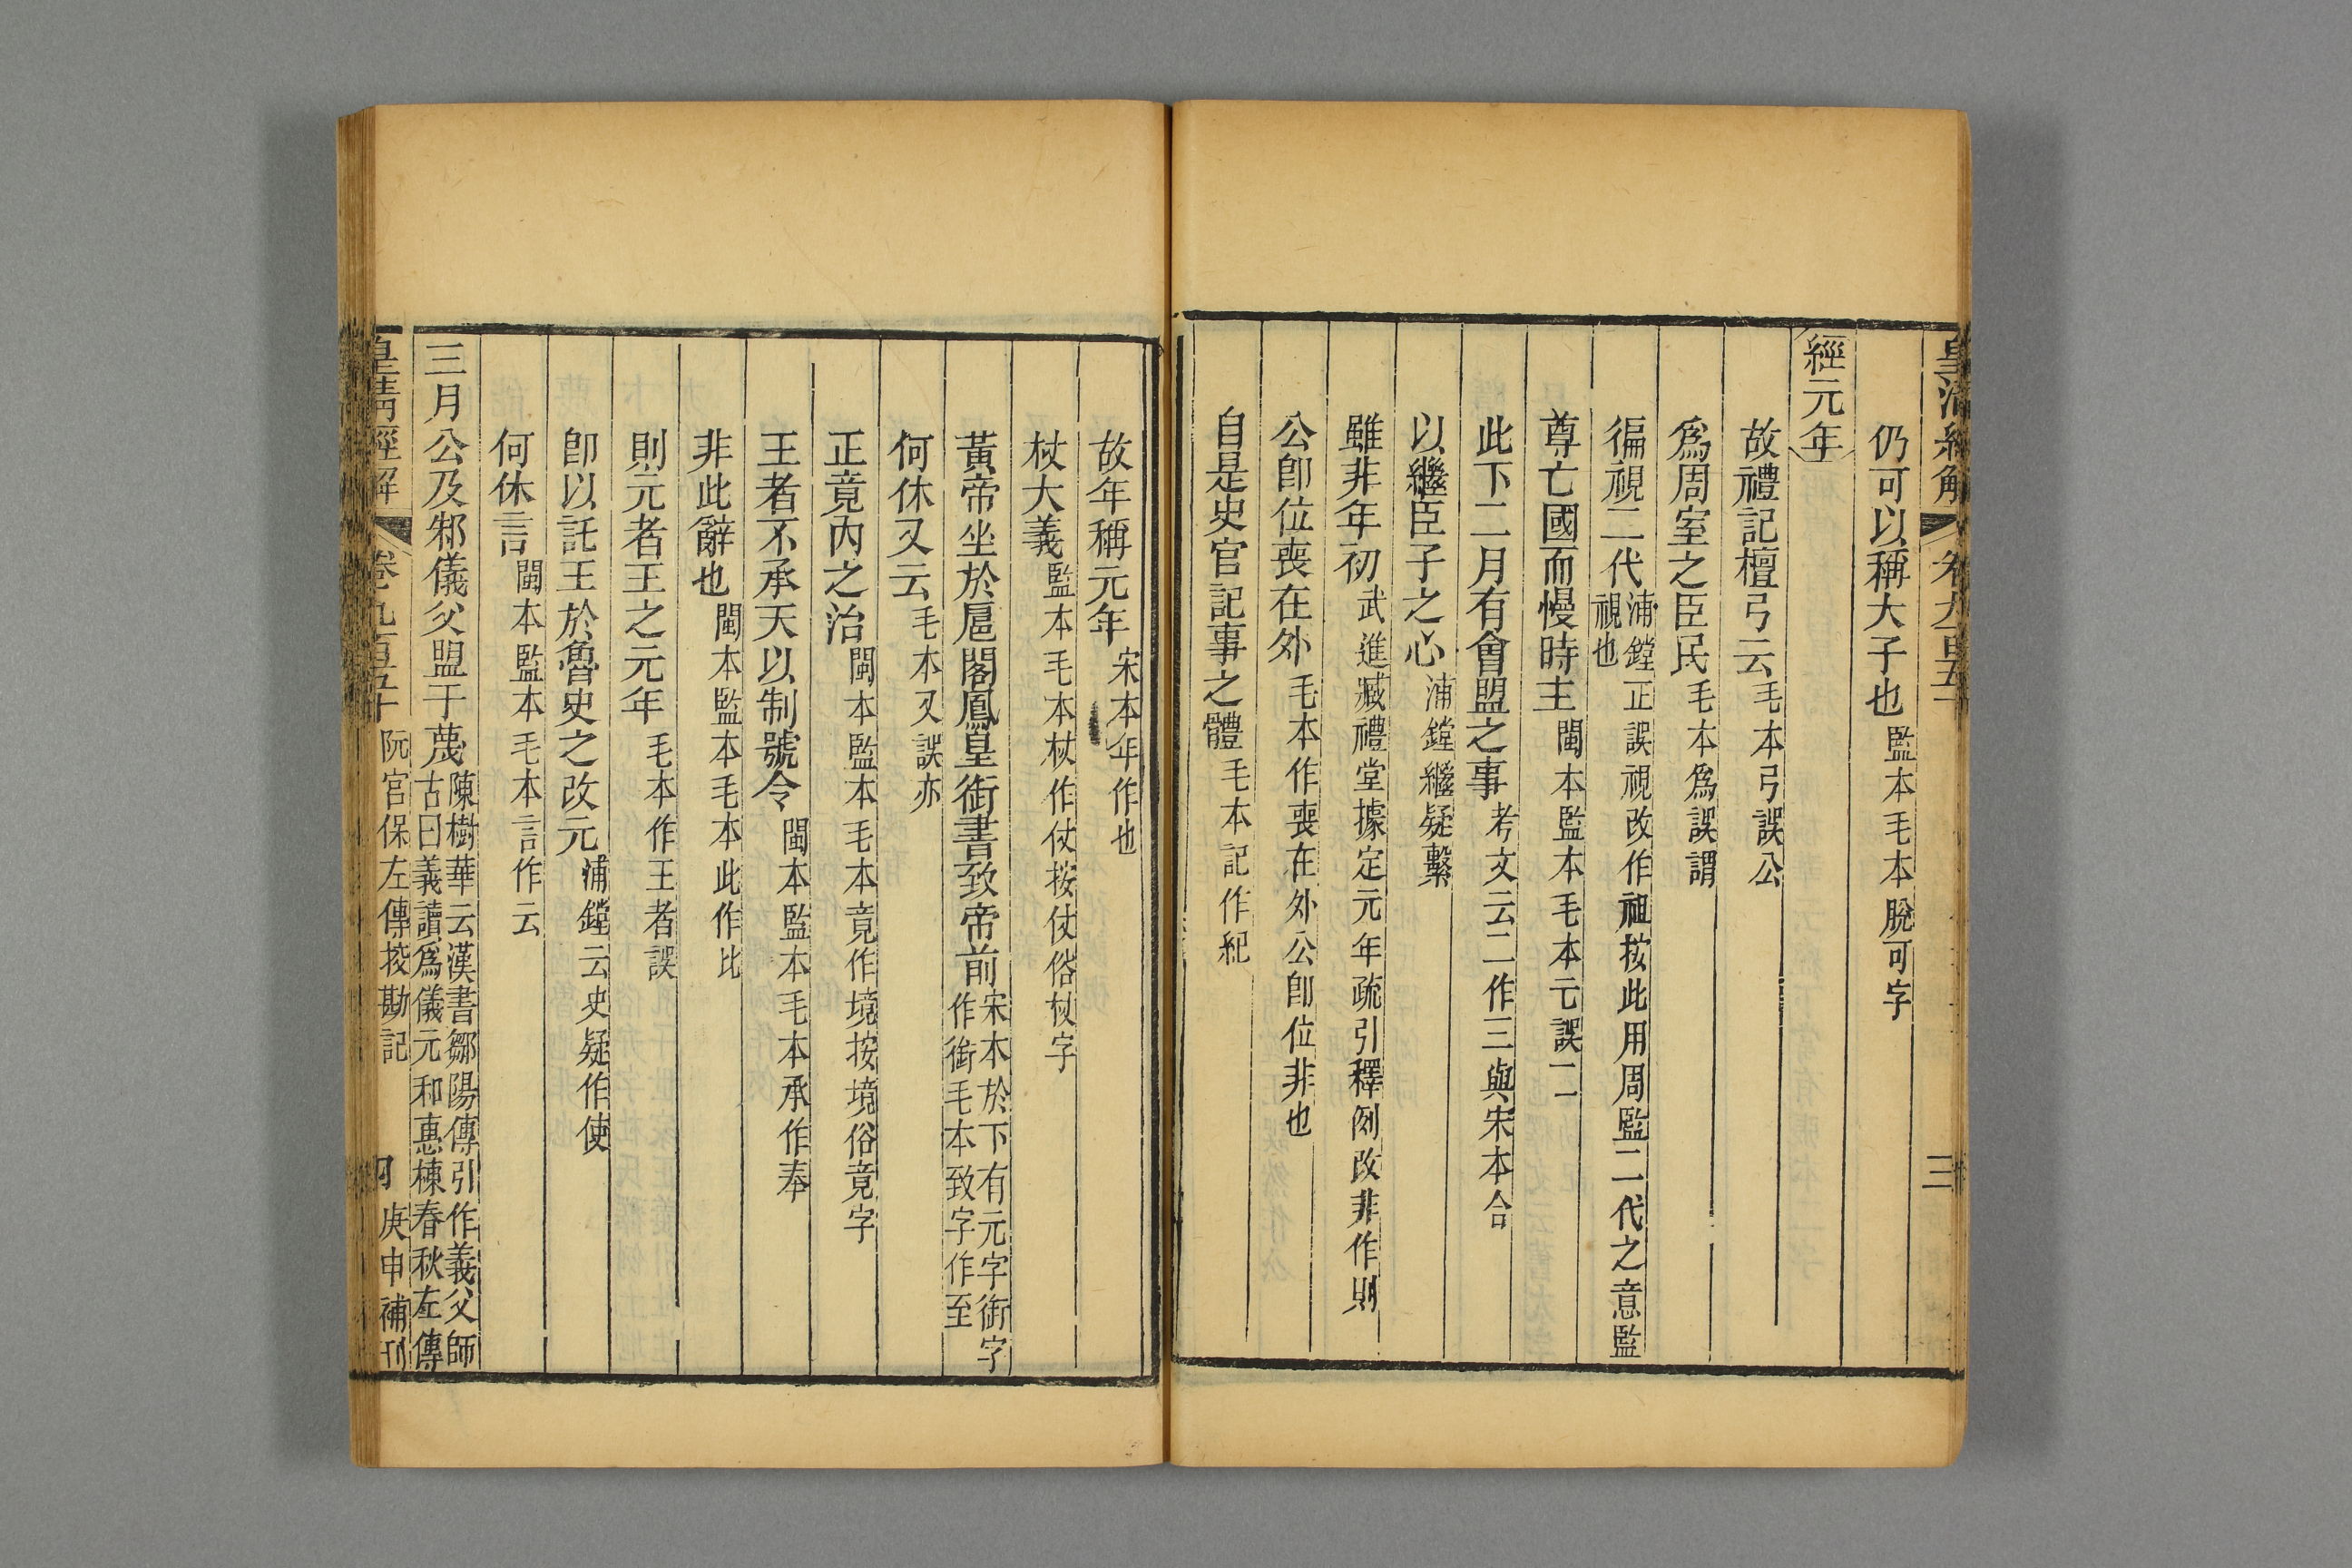 皇清經解 卷九百五十 三
仍可以稱大子也監本毛本脫可字
經元年
故禮記檀弓云毛本弓誤公
爲周室之臣民毛本爲誤謂
徧視二代浦鏜正誤視改作祖按此用周監二代之意監視也
尊亡國而慢時主閩本監本毛本亡誤二
此下二月有會盟之事考文云二作三與宋本合
以繼臣子之心浦鏜繼疑繫
雖非年初武進臧禮堂據定元年疏引釋例改非作則
公卽位喪在外毛本作喪在外公卽位非也
自是史官記事之體毛本記作紀
故年稱元年宋本年作也
杖大義監本毛本杖作仗按仗俗杖字
黃帝坐於扈閣鳳皇銜書致帝前宋本於下有元字銜字作㘅毛本致字作至
何休又云毛本又誤亦
正竟內之治閩本監本毛本竟作境按境俗竟字
王者不承天以制號令閩本監本毛本承作奉
非此辭也閩本監本毛本此作比
則元者王之元年毛本作王者誤
卽以託王於魯史之改元浦鏜云史疑作使
何休言閩本監本毛本言作云
三月公及邾儀父盟于蔑陳樹華云漢書鄒陽傳引作義父師古曰義讀爲儀元和惠棟春秋左傳
皇清經解 卷九百五十 阮宮保左傳挍勘記 四 庚申補刊